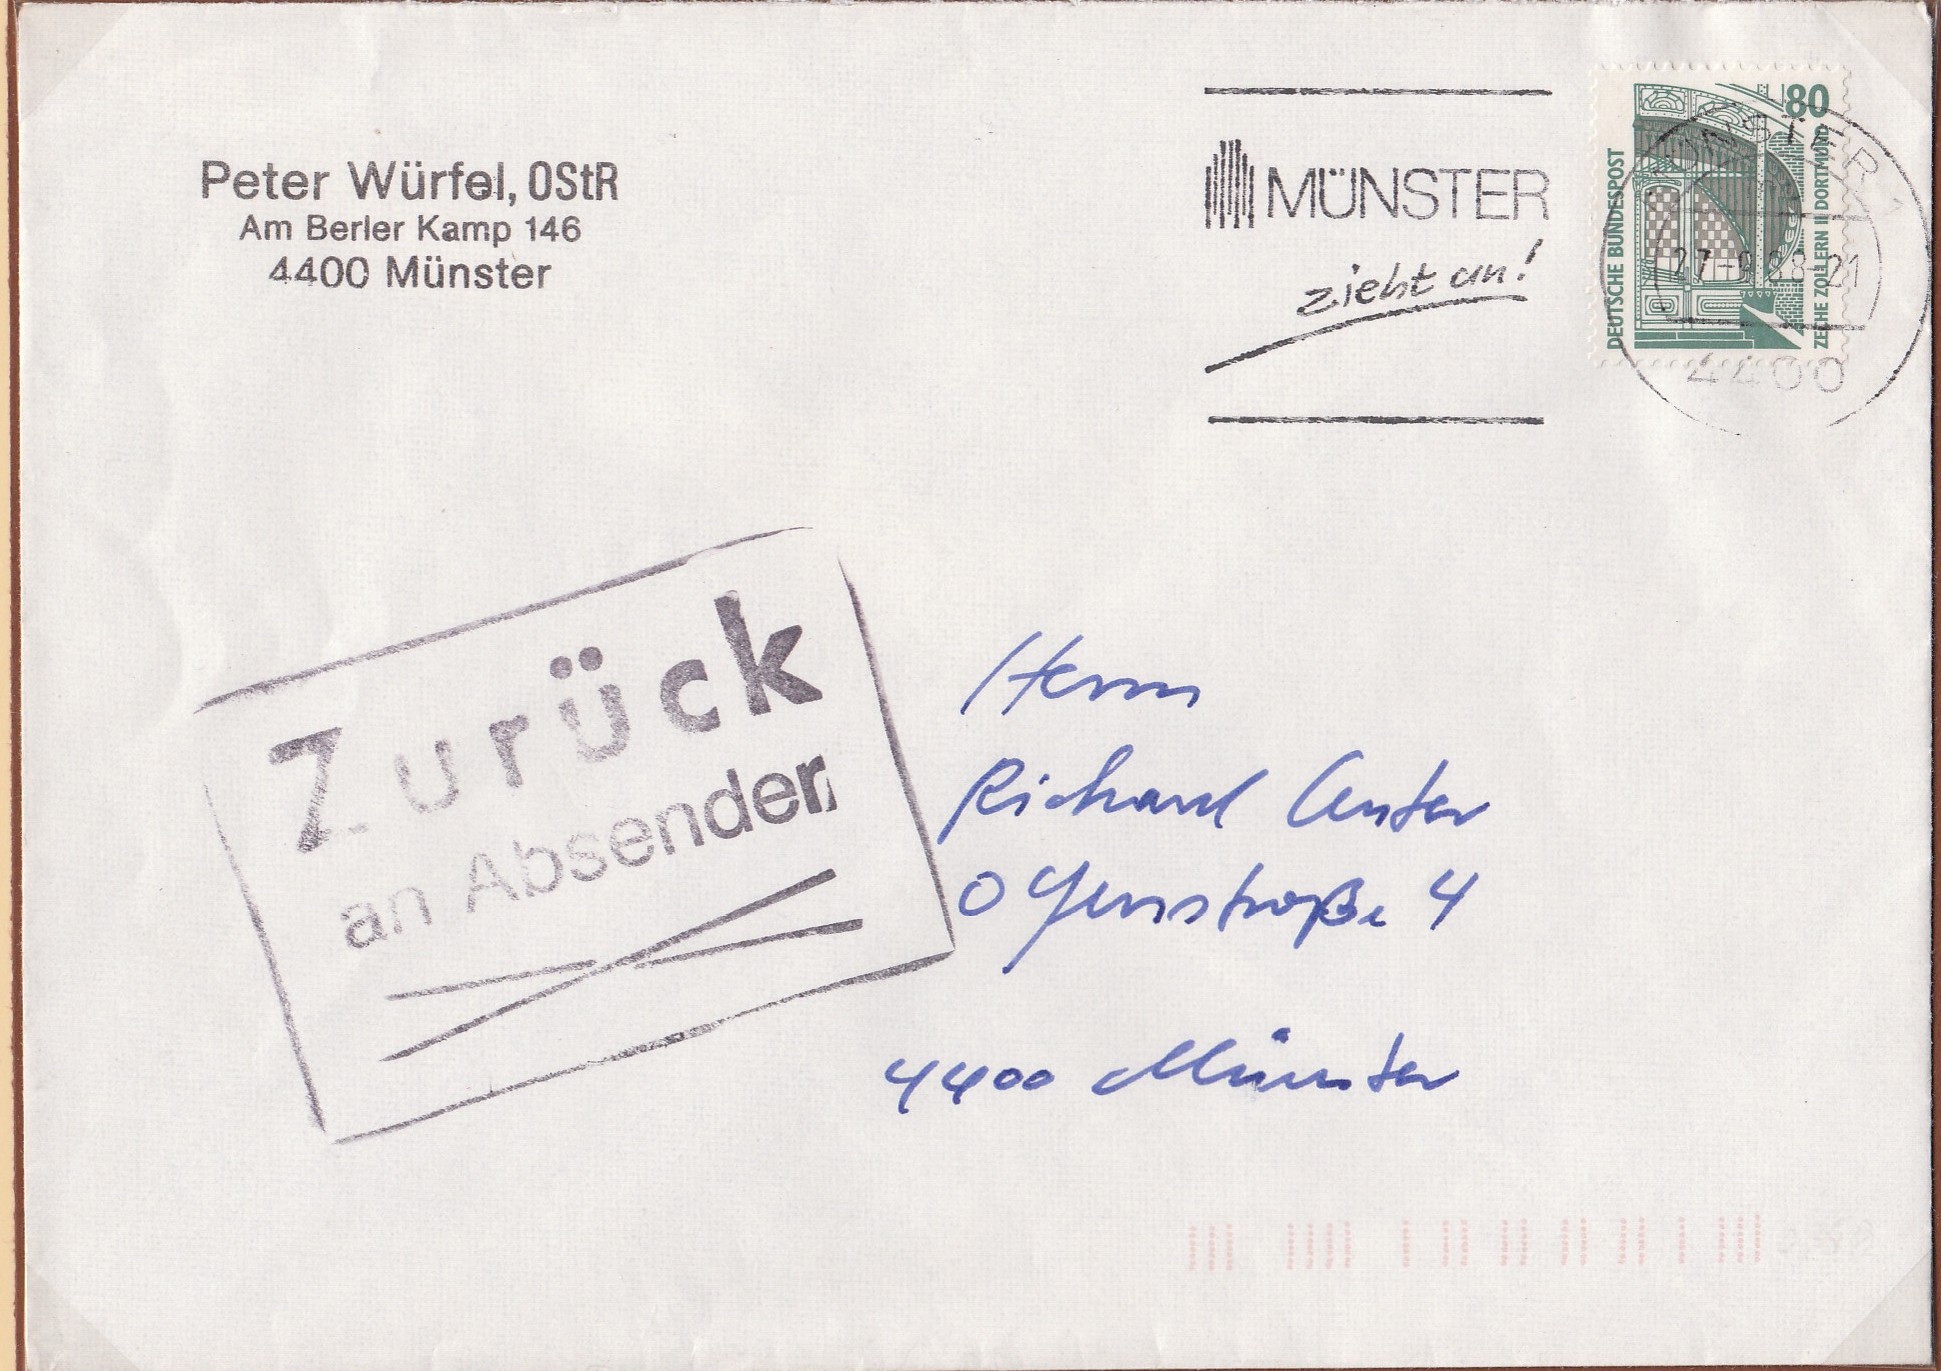 Peter Würfel, OStR
Am Berler Kamp 146
4400 Münster
MÜNSTER
zieht an!
80
DEUTSCHE BUNDESPOST
ZECHE ZOLLERN II DORTMUND
4400
Zurück
an Absender
Herrn
Richard
4
4400 Münster